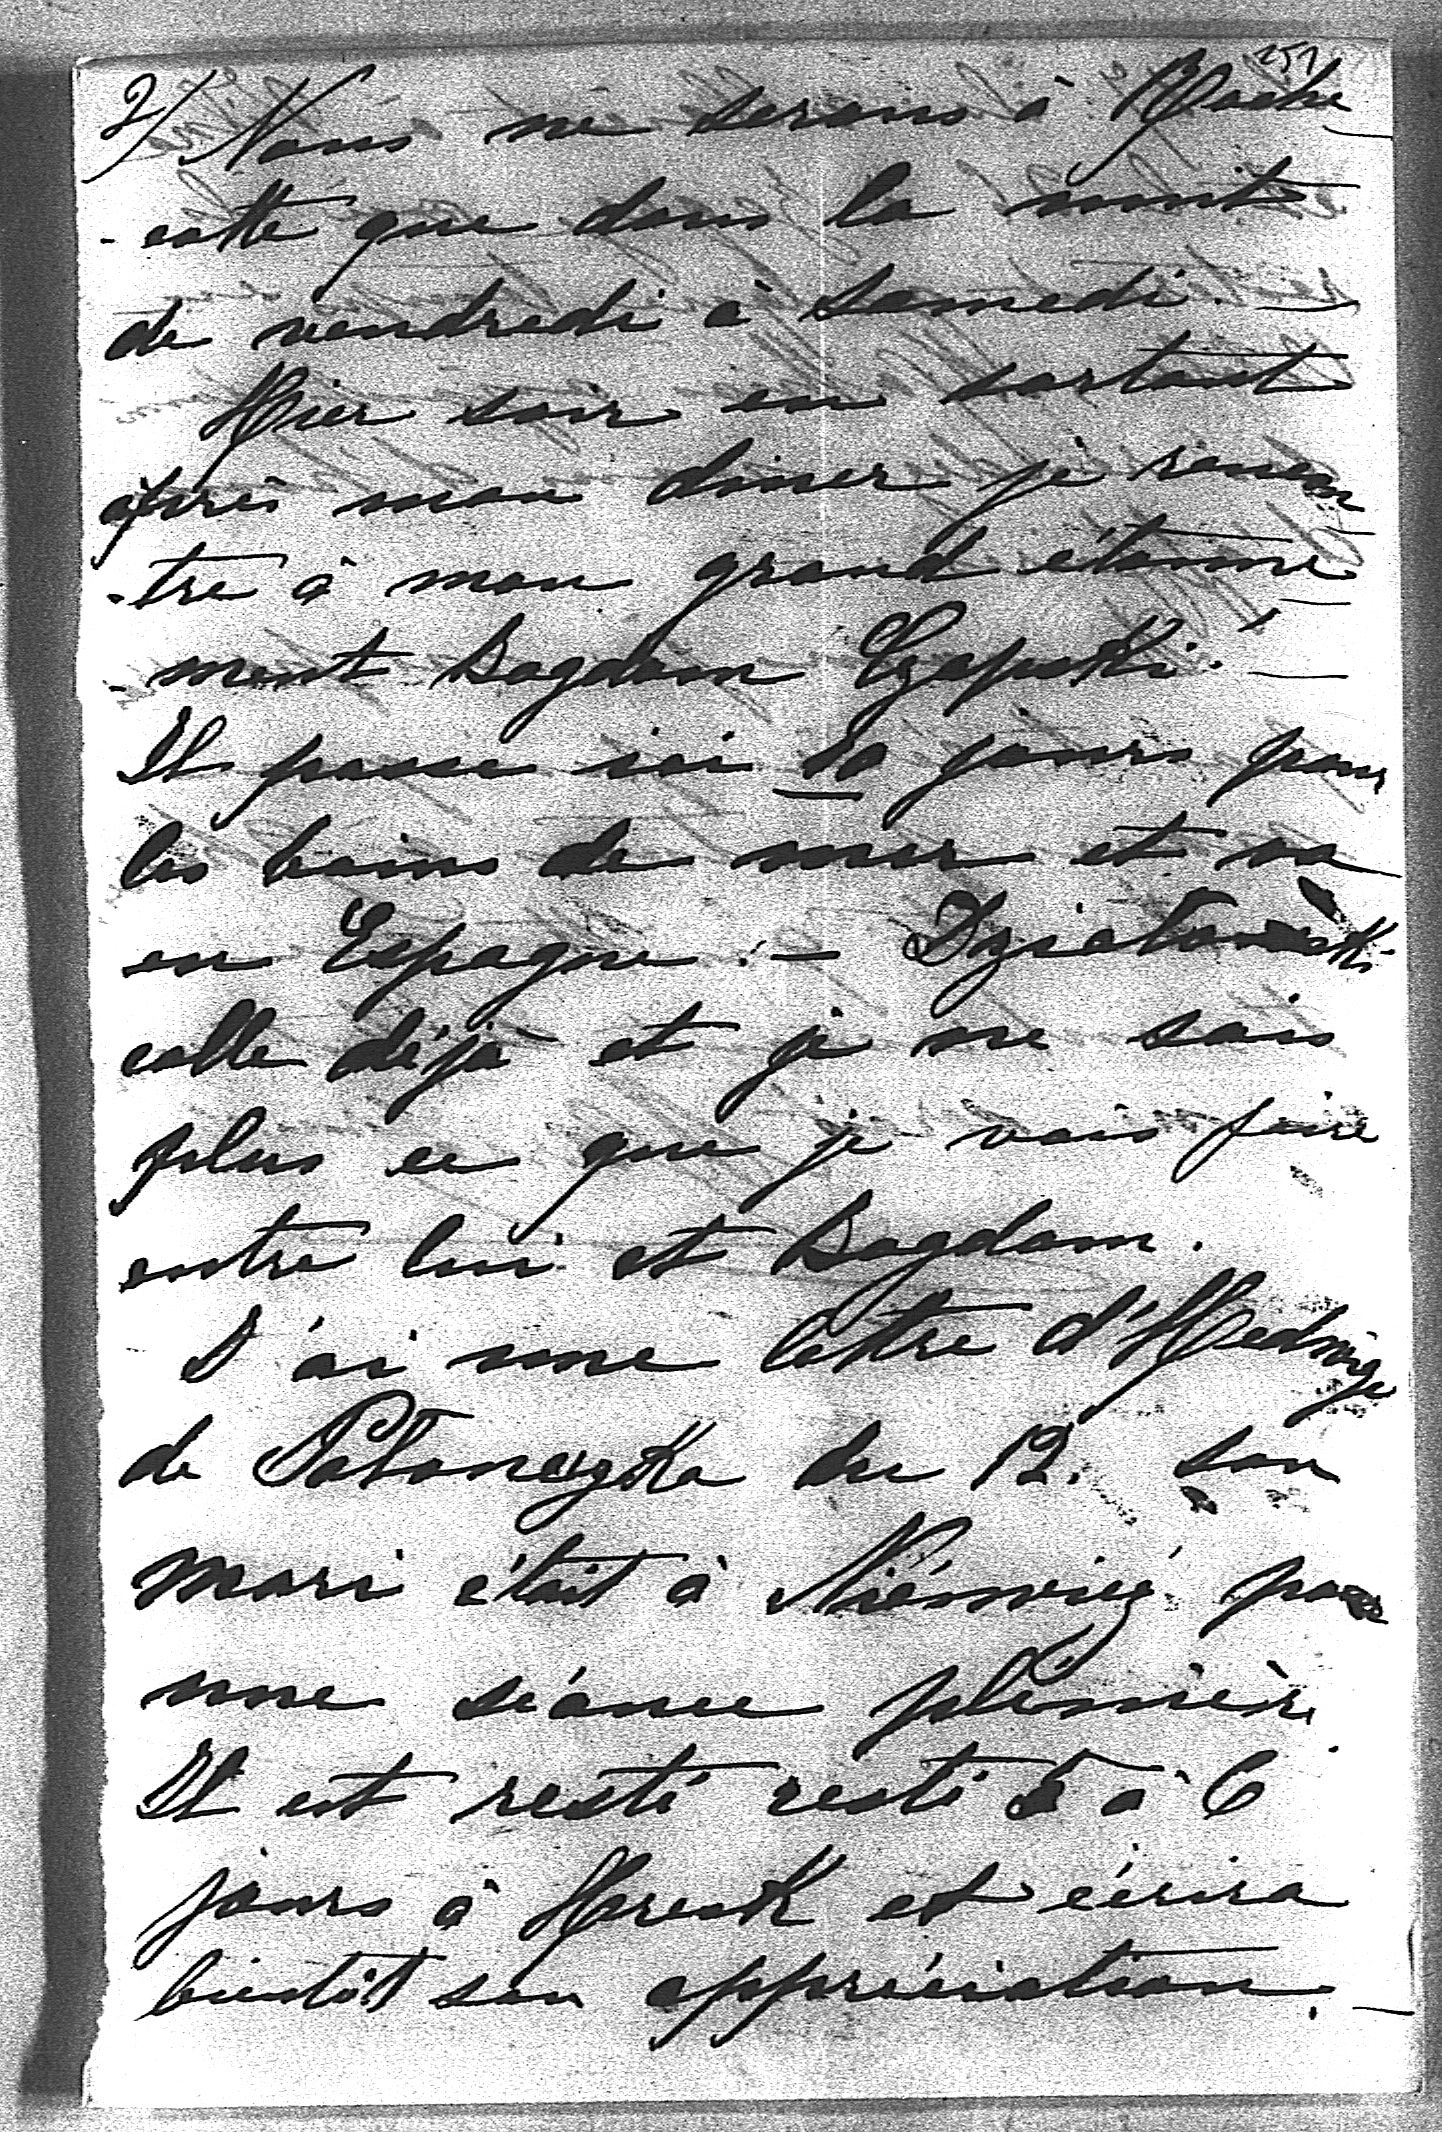 251
2/ Nous ne serons à Roche
-cotte que dans la nuit
de vendredi à samedi. —
Hier soir en sortant
après mon diner je rencon
-tre à mon grand étonne
-ment Bogdam Czapski. —
Il passe ici 10 jours pour
les bains de mer et va
en Espagne. —
colle déjà et je ne sais
plus ce que je vais faire
entre lui et Bogdam.
J'ai une lettre d'Hedwige
de Patoneczka du 12. son
mari était à Niéswiéz pour
une séance plénière
Il est resté resté 5 à 6
jours à Hresk et écrira
bientôt son appréciation. —